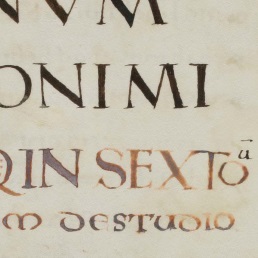 NVM
ONIMI
QIN SEXTO ū
m de studio